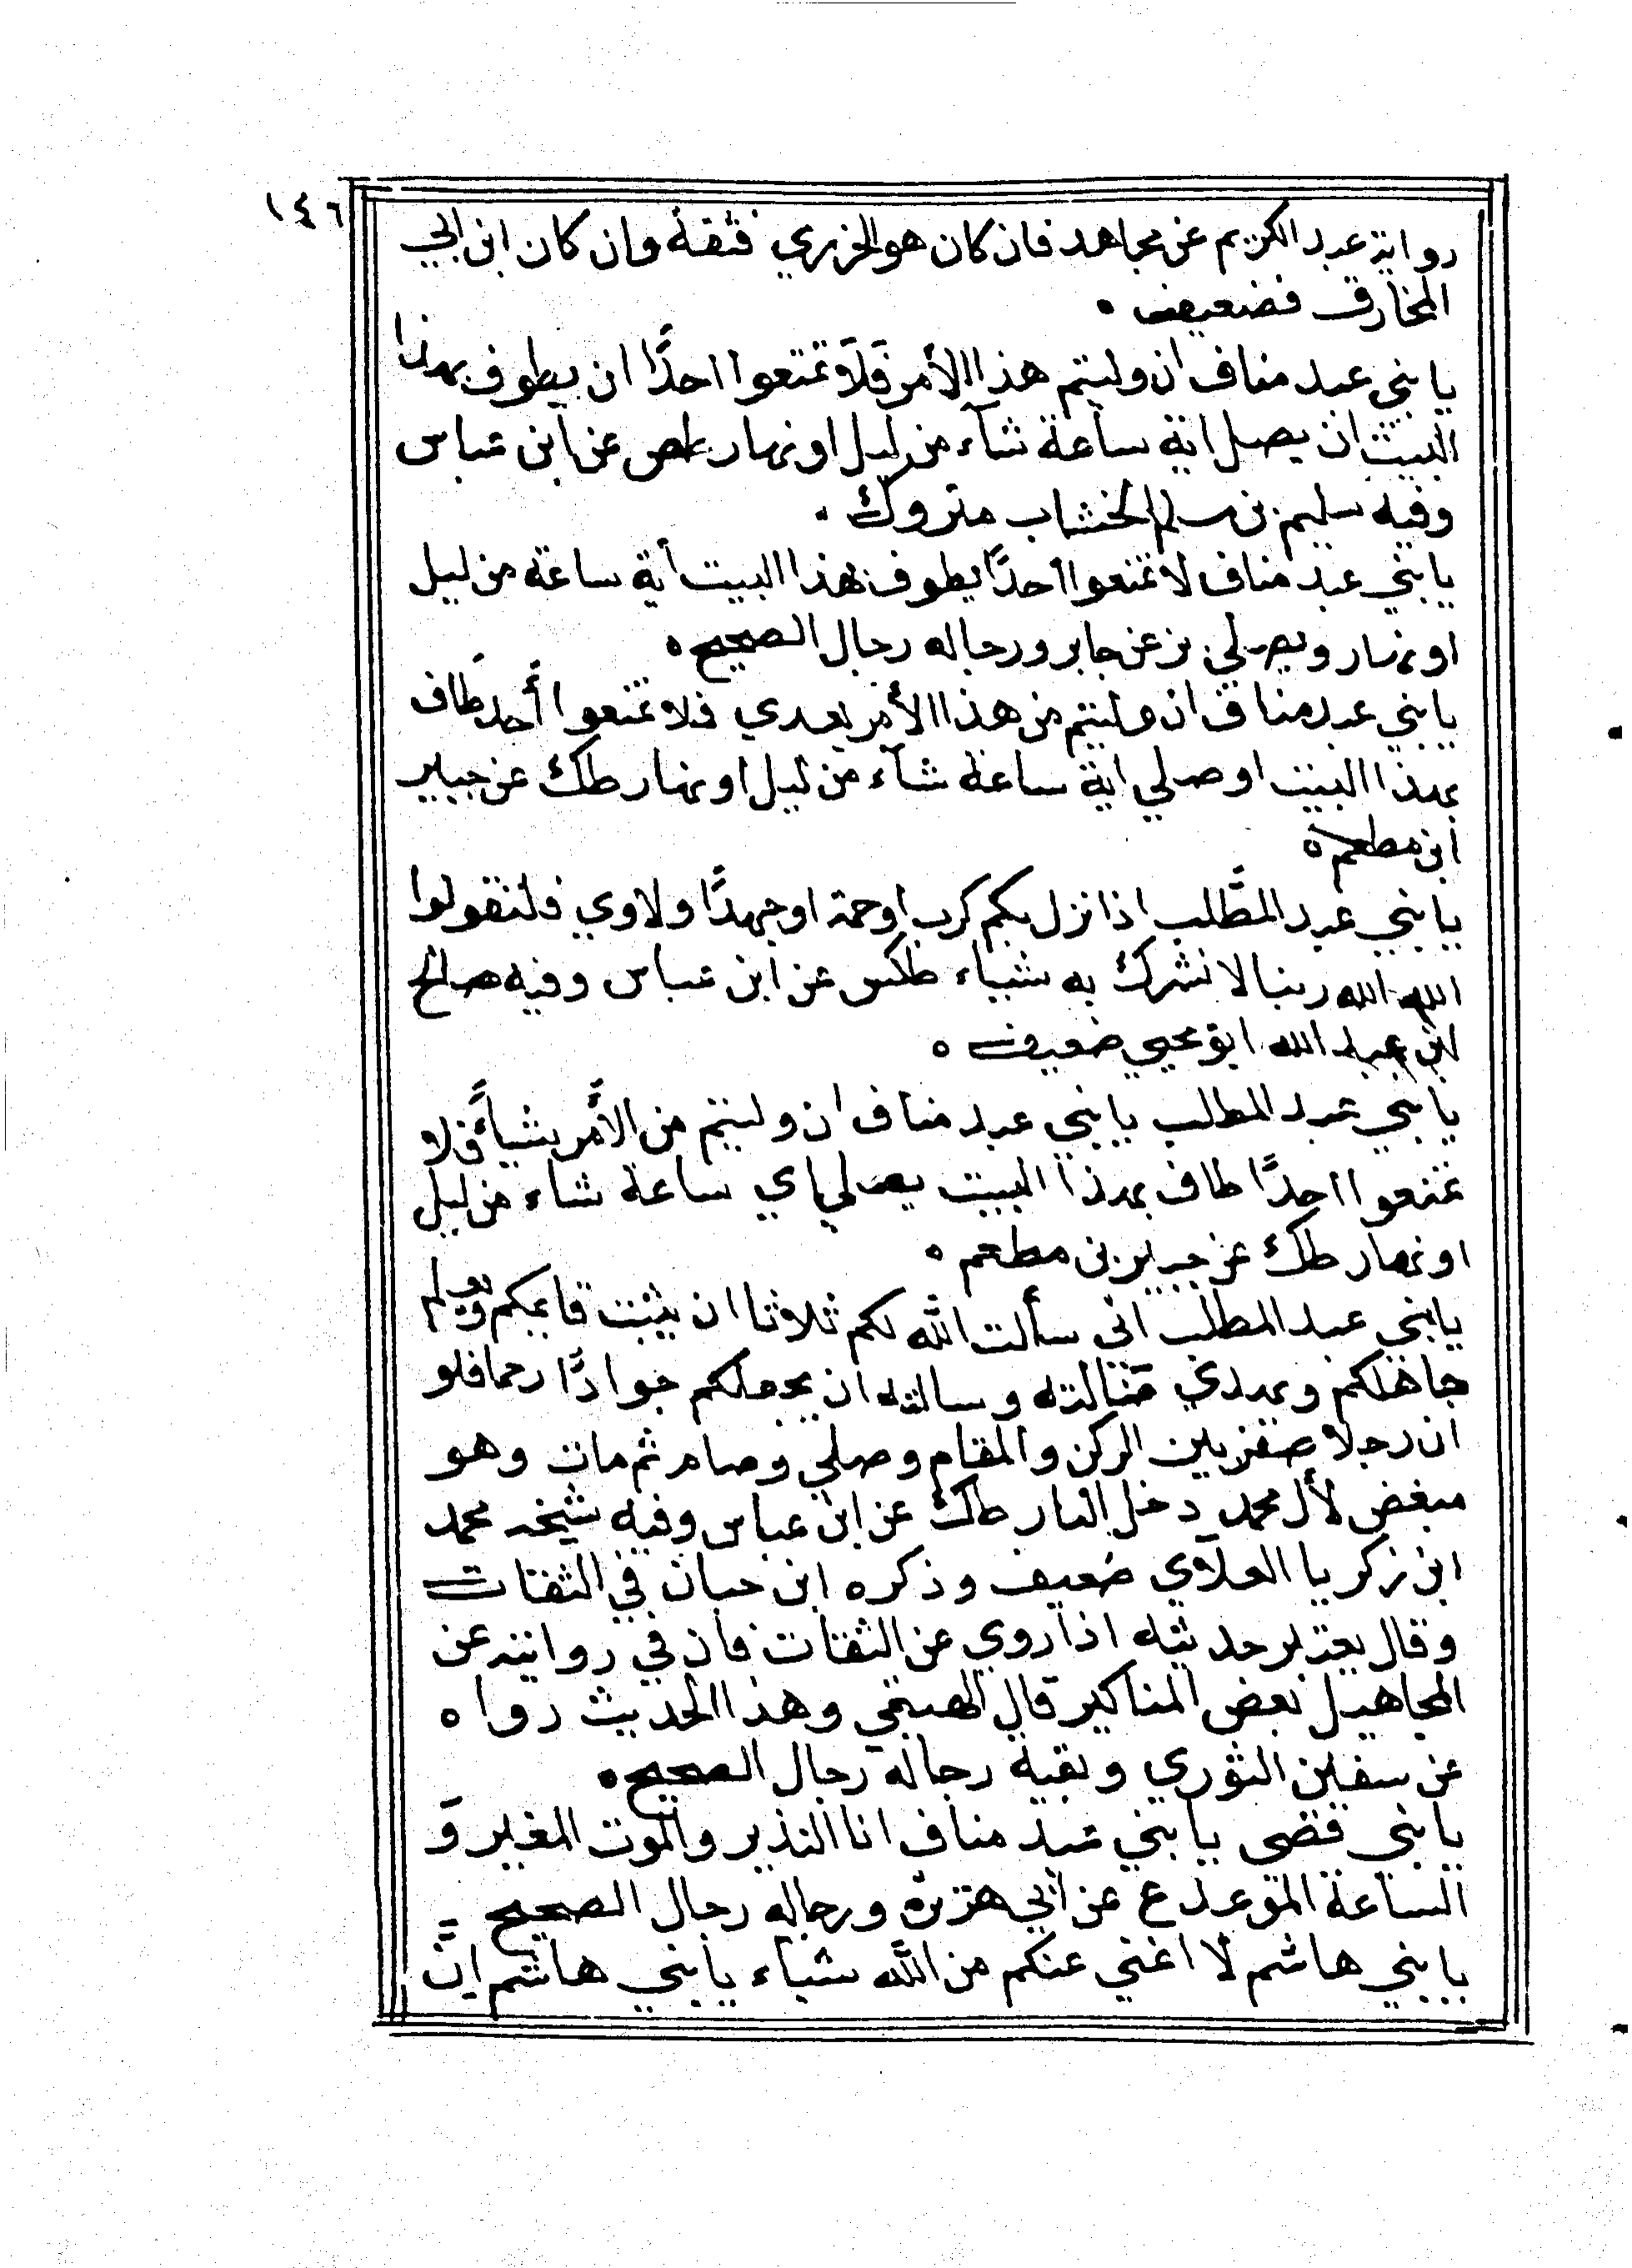 ١٤٦
رواية عبد الكريم عن مجاهد فان كان هو الجزري فثقة وان كان ابن ابي
المخارق فضعيف ه
يا بني عبد مناف ان وليتم هذا الأمر فلا تمتعوا احدًا ان يطوف بهذا
البيت ان يصل اية ساعة شآء من ليل او نهار طص عن ابن عباس
وفيه سليم بن مسلم الخشاب متروك .
يا بني عبد مناف لا تمنعوا احدًا يطوف بهذا البيت أية ساعة من ليل
او نهار ويصلي بز عن جابر ورجاله رجال الصحيح ه
يا بني عبد مناف ان وليتم من هذا الأمر بعدي فلا تمنعوا أحد طاف
بهذا البيت او صلي اية ساعة شآء من ليل او نهار طك عن جبير
ابن مطعم ه
يا بني عبد المطَّلب اذا نزل بكم كرب او حمة او جهدًا ولاوي فلتقولوا
الله الله ربنا لا نشرك به شياء طكس عن ابن عباس وفيه صالح
ابن عبد الله ابو يحيي ضعيف ه
يا بني عبد المطلب يا بني عبد مناف ان وليتم من الأمر شيأً فلا
تمنعوا احدًا طاف بهذا البيت يصلي اي ساعة شاء من ليل
او نهار طك عن جبير بن مطعم ه
يا بني عبد المطلب انى سألت الله لكم ثلاثا ان يثبت قايمكم ويعلم
جاهلكم ويهدي وسالته ان يجعلكم جوادًا رحما فلو
ان رجلا صفن بين الركن والمقام وصلي وصام ثم مات وهو
مبغض لأل محمد دخل النار طك عن ابن عباس وفيه شيخه محمد
ابن زكريا العلاوي ضعيف وذكره ابن حبان في الثقات
وقال يعتبر حديثه اذا روي عن الثقات فان في روايته عن
المجاهيل بعض المناكير قال الهيتمي وهذا الحديث رواه
عن سفين الثوري وبقية رجاله رجال الصحيح ه
يا بني قصى يا بني عبد مناف انا النذير والموت المغير وَ
الساعة الموعد ع عن ابي هريرة ورجاله رجال الصحيح
يا بني هاشم لا اغني عنكم من الله شياء يا بني هاشم انَّ